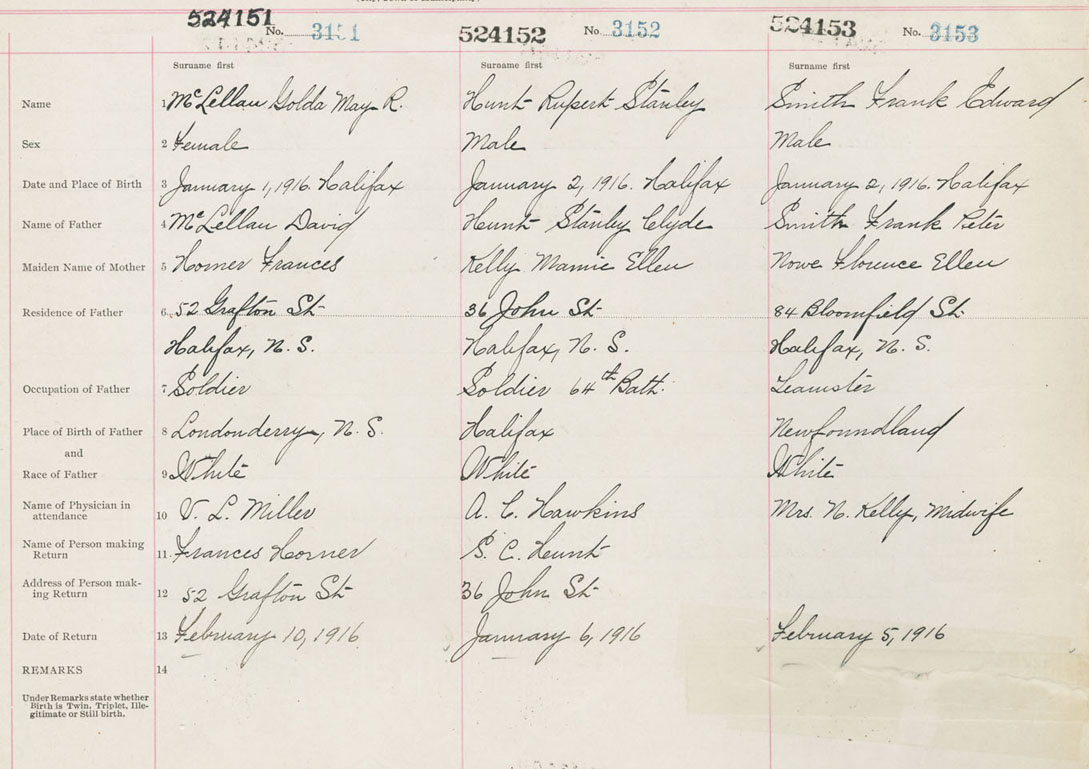 524151 No. 3151 524152 No. 3152 524153 No. 3153
Surname first Surname first Surname first
Name 1 McLellan Golda May R. Hunt Rupert Stanley Smith Frank Edward
Sex 2 Female Male Male
Date and Place of Birth 3 January 1, 1916. Halifax January 2, 1916. Halifax January 2, 1916. Halifax
Name of Father 4 McLellan David Hunt Stanley Clyde Smith Frank Peter
Maiden Name of Mother 5 Horner Frances Kelly Mamie Ellen Nowe Florence Ellen
Residence of Father 6 52 Grafton St 36 John St 84 Bloomfield St.
Halifax, N. S. Halifax, N. S. Halifax, N. S.
Occupation of Father 7 Soldier Soldier 64th Batt. Teamster
Place of Birth of Father 8 Londonderry, N. S. Halifax Newfoundland
and
Race of Father 9 White White White
Name of Physician in
attendance 10 V. L. Miller A. C. Hawkins Mrs. N. Kelly, Midwife
Name of Person making
Return 11 Frances Horner S. C. Hunt
Address of Person mak-
ing Return 12 52 Grafton St 36 John St
Date of Return 13 February 10, 1916 January 6, 1916 February 5, 1916
REMARKS 14
Under Remarks state whether
Birth is Twin, Triplet, Ille-
gitimate or Still birth.